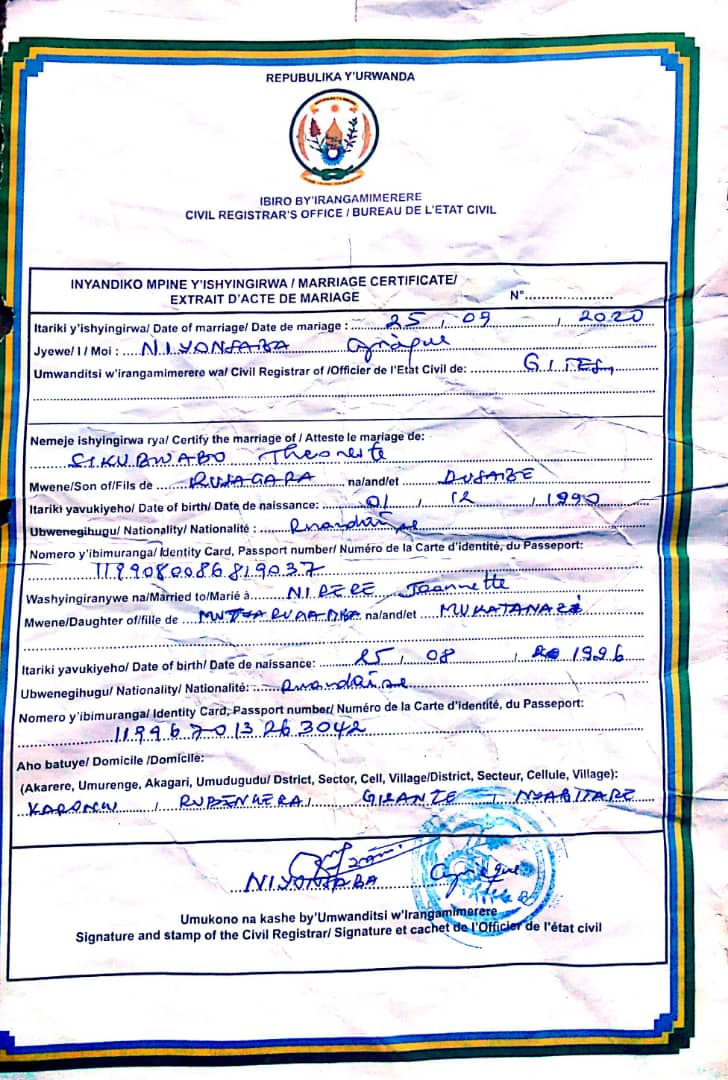 REPUBULIKA Y'URWANDA
IBIRO BY'IRANGAMIMERERE
CIVIL REGISTRAR'S OFFICE / BUREAU DE L'ETAT CIVIL
INYANDIKO MPINE Y'ISHYINGIRWA / MARRIAGE CERTIFICATE/
EXTRAIT D'ACTE DE MARIAGE N°.....................
Itariki y'ishyingirwa/ Date of marriage/ Date de mariage : 25 / 09 / 2020
Jyewe/ I / Moi : NIYONSABA
Umwanditsi w'irangamimerere wa/ Civil Registrar of /Officier de l'Etat Civil de:
Nemeje ishyingirwa rya/ Certify the marriage of / Atteste le mariage de:
SIKUBWABO Theoneste
Mwene/Son of/Fils de RUSAGARA na/and/et DUSABE
Itariki yavukiyeho/ Date of birth/ Date de naissance: 01 / 12 / 1990
Ubwenegihugu/ Nationality/ Nationalité : Rwandaise
Nomero y'ibimuranga/ Identity Card, Passport number/ Numéro de la Carte d'identité, du Passeport:
1199080086819037
Washyingiranywe na/Married to/Marié à NIRERE Jeannette
Mwene/Daughter of/fille de na/and/et
Itariki yavukiyeho/ Date of birth/ Date de naissance: 25 / 08 / 1996
Ubwenegihugu/ Nationality/ Nationalité: Rwandaise
Nomero y'ibimuranga/ Identity Card, Passport number/ Numéro de la Carte d'identité, du Passeport:
119967013263042
Aho batuye/ Domicile /Domicile:
(Akarere, Umurenge, Akagari, Umudugudu/ Dstrict, Sector, Cell, Village/District, Secteur, Cellule, Village):
KARONGI / RUBENGERA / GISANZE / NYABITARE
NIYONSABA
Umukono na kashe by'Umwanditsi w'Irangamimerere
Signature and stamp of the Civil Registrar/ Signature et cachet de l'Officier de l'état civil